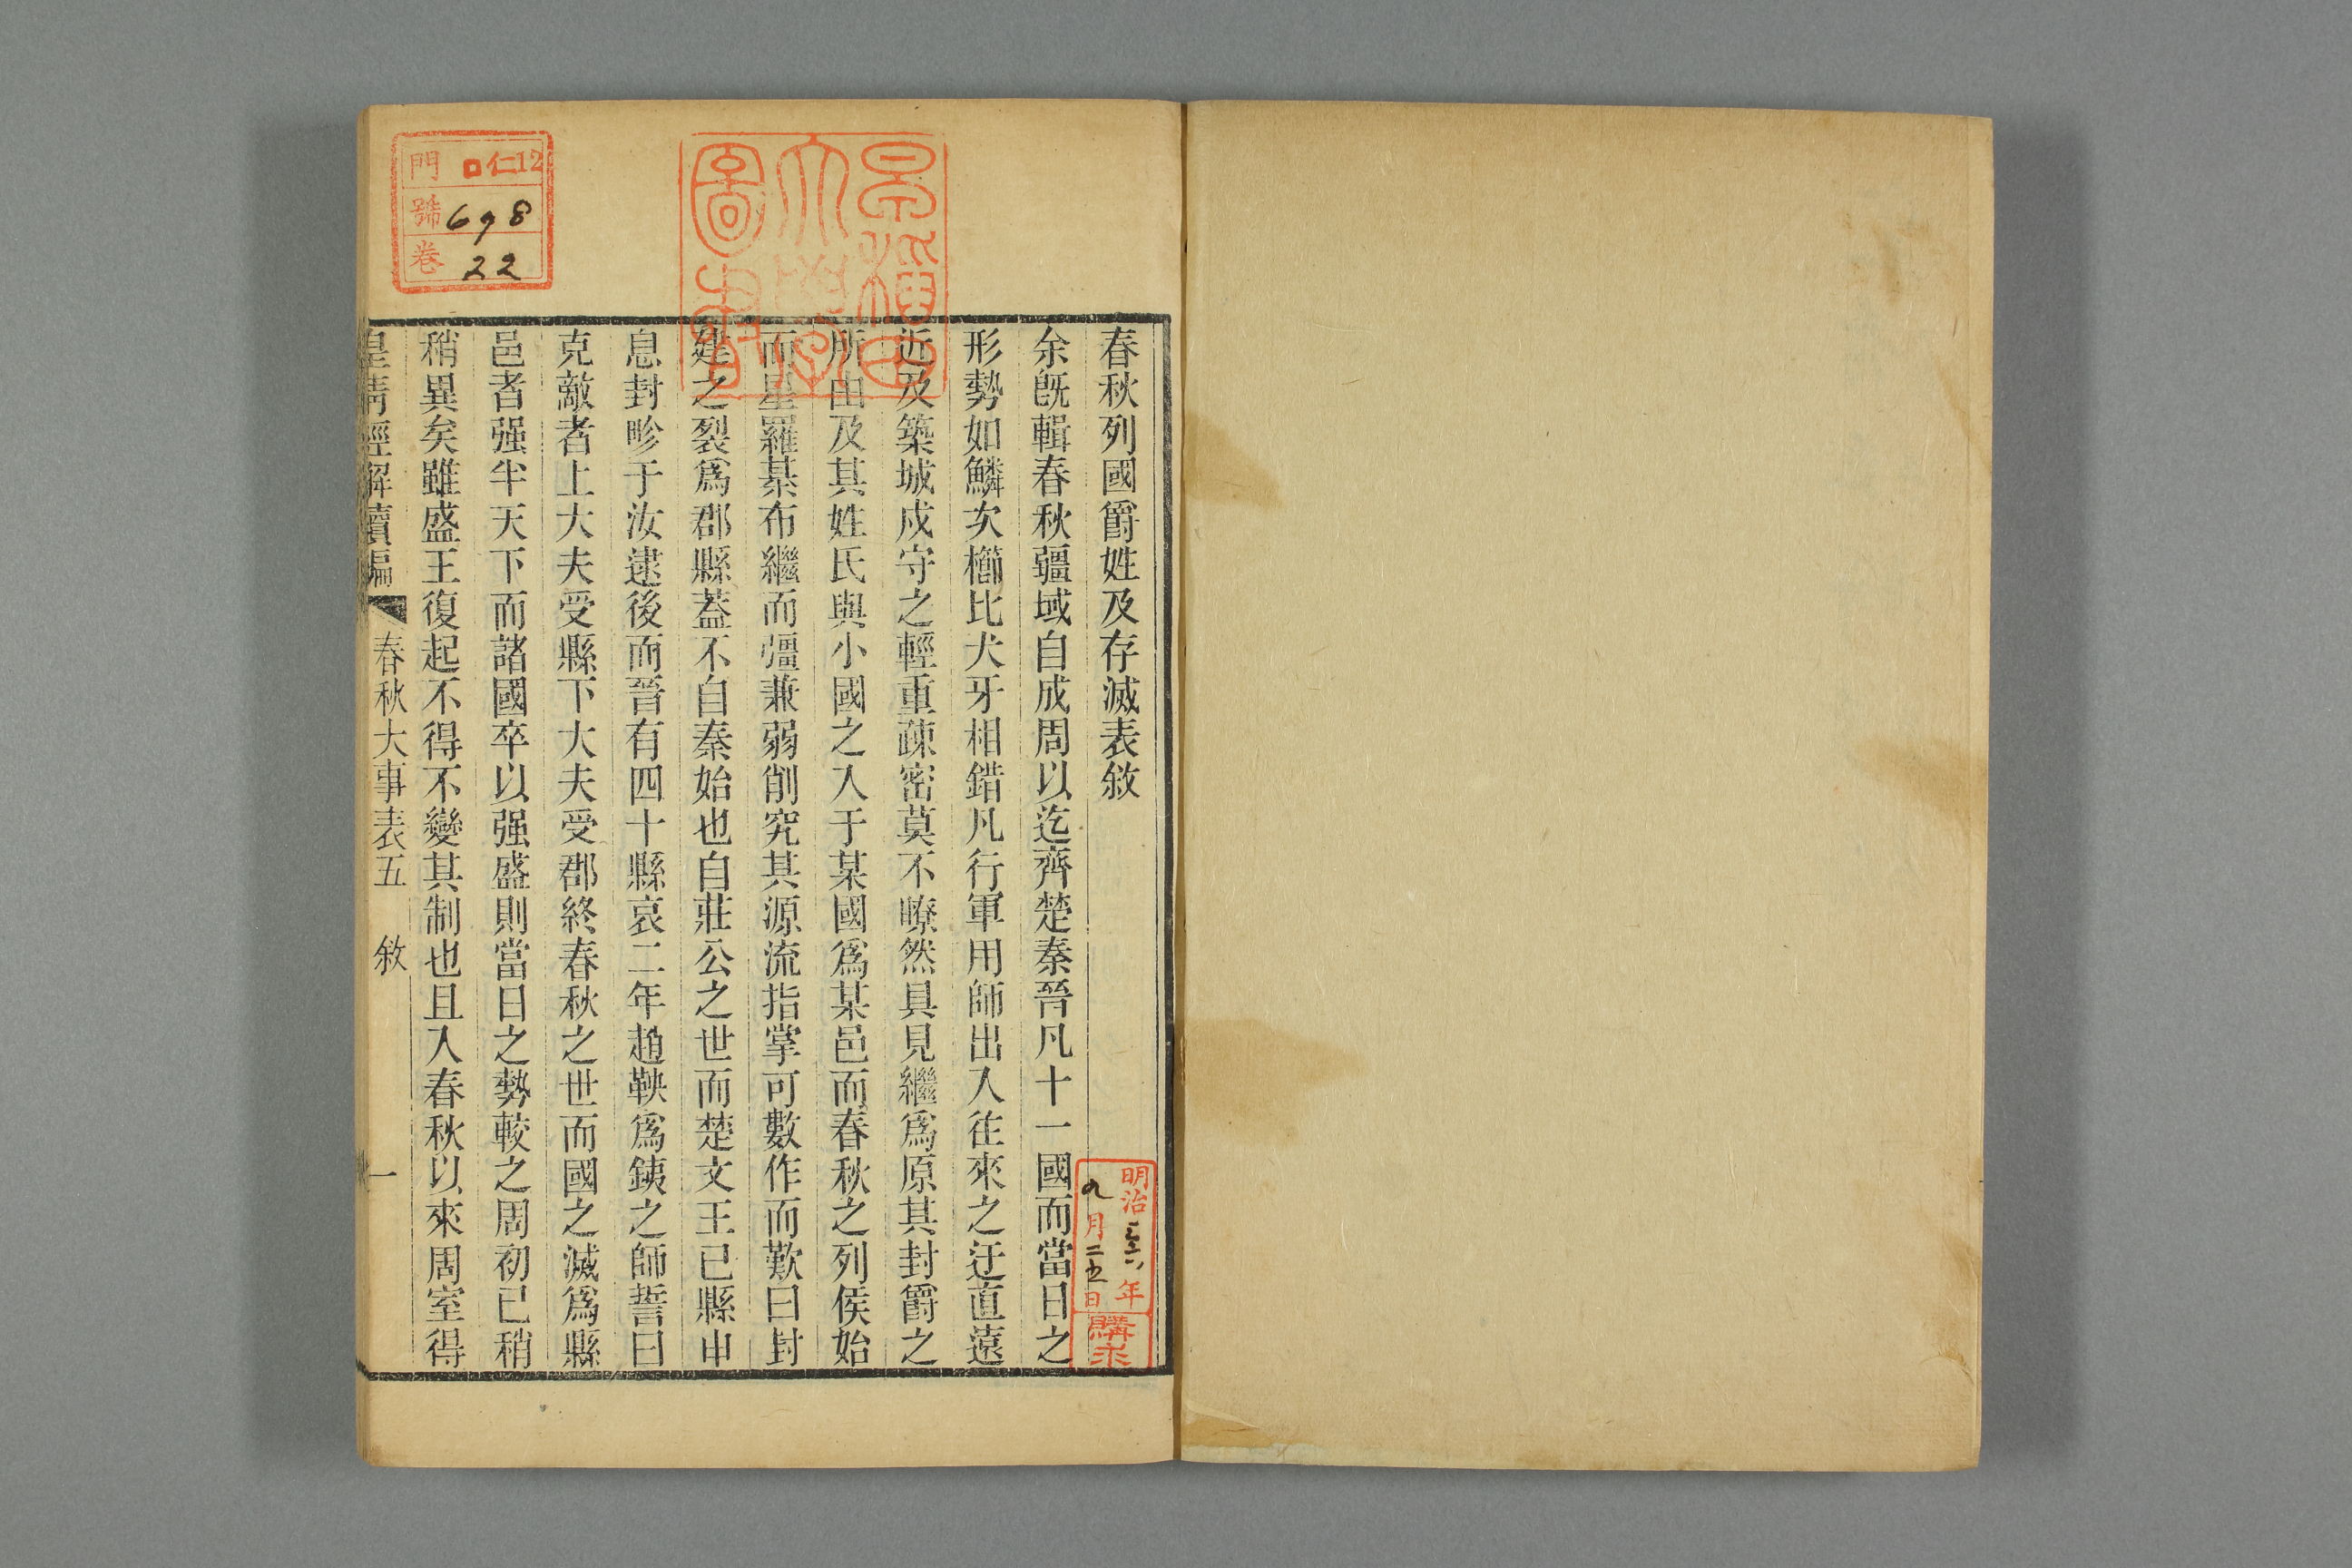 春秋列國爵姓及存滅表敘
余旣輯春秋疆域自成周以迄齊楚秦晉凡十一國而當日之
形勢如鱗次櫛比犬牙相錯凡行軍用師出入往來之迂直遠
近及築城戍守之輕重疎密莫不暸然具見繼爲原其封爵之
所由及其姓氏與小國之入于某國爲某邑而春秋之列侯始
而星羅棊布繼而彊兼弱削究其源流指掌可數作而歎曰封
建之裂爲郡縣葢不自秦始也自莊公之世而楚文王已縣申
息封畛于汝逮後而晉有四十縣哀二年趙鞅爲銕之師誓曰
克敵者上大夫受縣下大夫受郡終春秋之世而國之滅爲縣
邑者强半天下而諸國卒以强盛則當日之勢較之周初已稍
稍異矣雖盛王復起不得不變其制也且入春秋以來周室得
皇淸經解續編 春秋大事表五 敘 一
早稲田大學圖書
門 ロ仁12
號 698
卷 22
明治三六年
九月二五日
購求